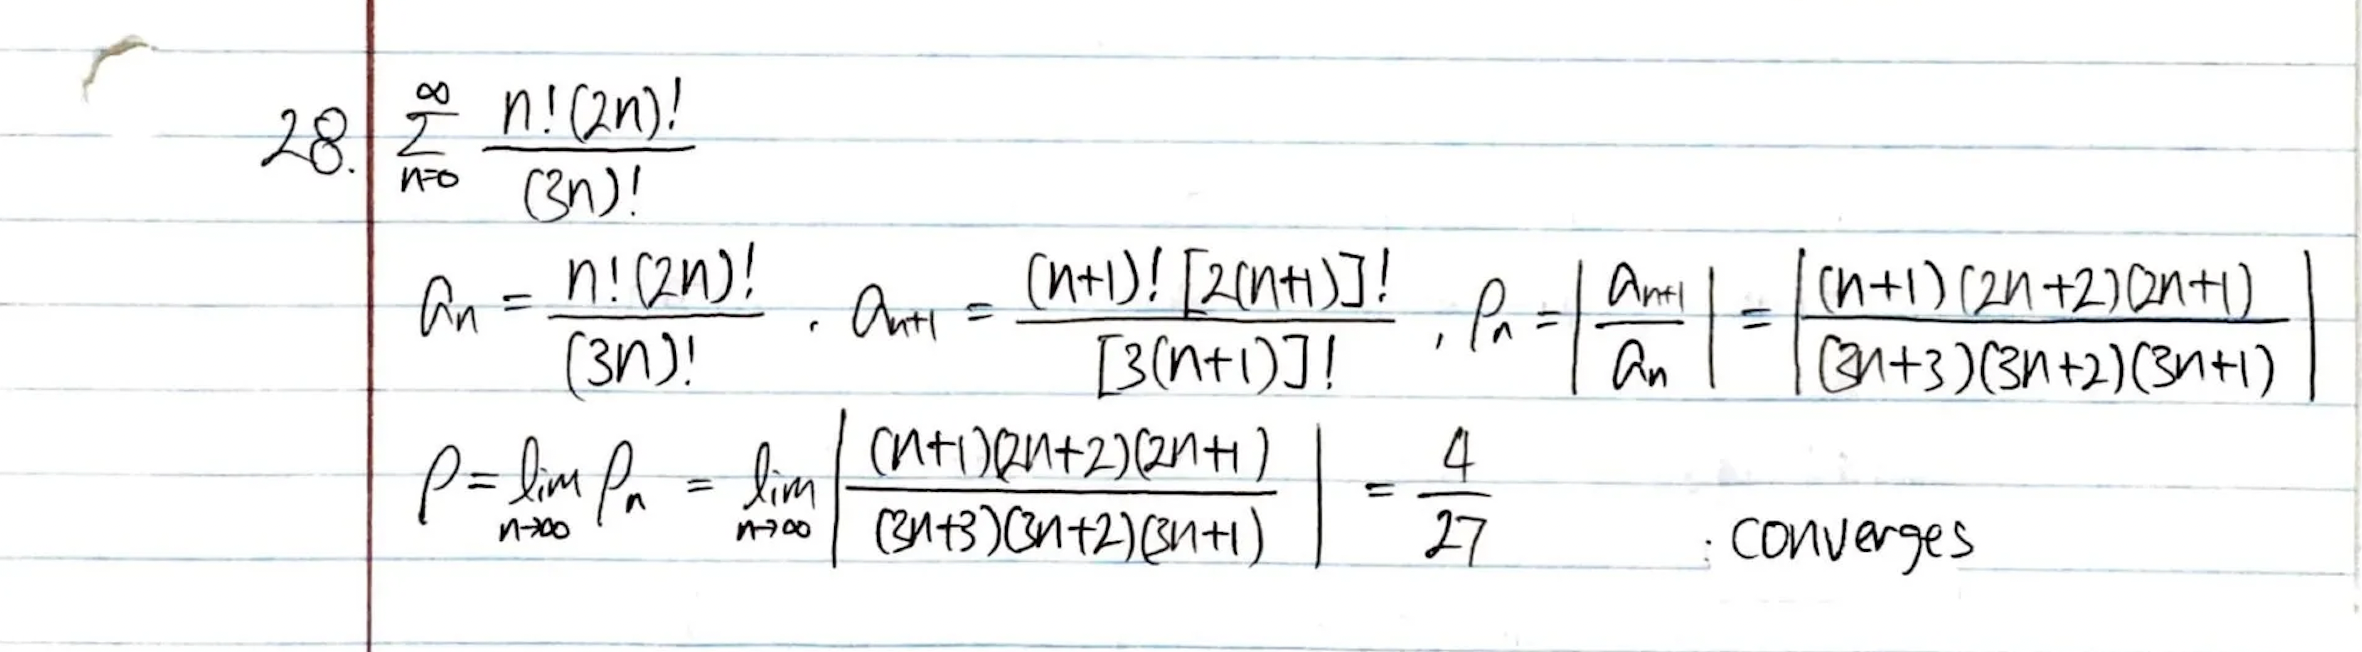 28. $\sum_{n=0}^{\infty} \frac{n!(2n)!}{(3n)!}$
$a_n = \frac{n!(2n)!}{(3n)!}$ . $a_{n+1} = \frac{(n+1)![2(n+1)]!}{[3(n+1)]!}$ , $\rho_n = \left|\frac{a_{n+1}}{a_n}\right| = \left|\frac{(n+1)(2n+2)(2n+1)}{(3n+3)(3n+2)(3n+1)}\right|$
$\rho = \lim_{n\to\infty} \rho_n = \lim_{n\to\infty} \left|\frac{(n+1)(2n+2)(2n+1)}{(3n+3)(3n+2)(3n+1)}\right| = \frac{4}{27}$ : converges